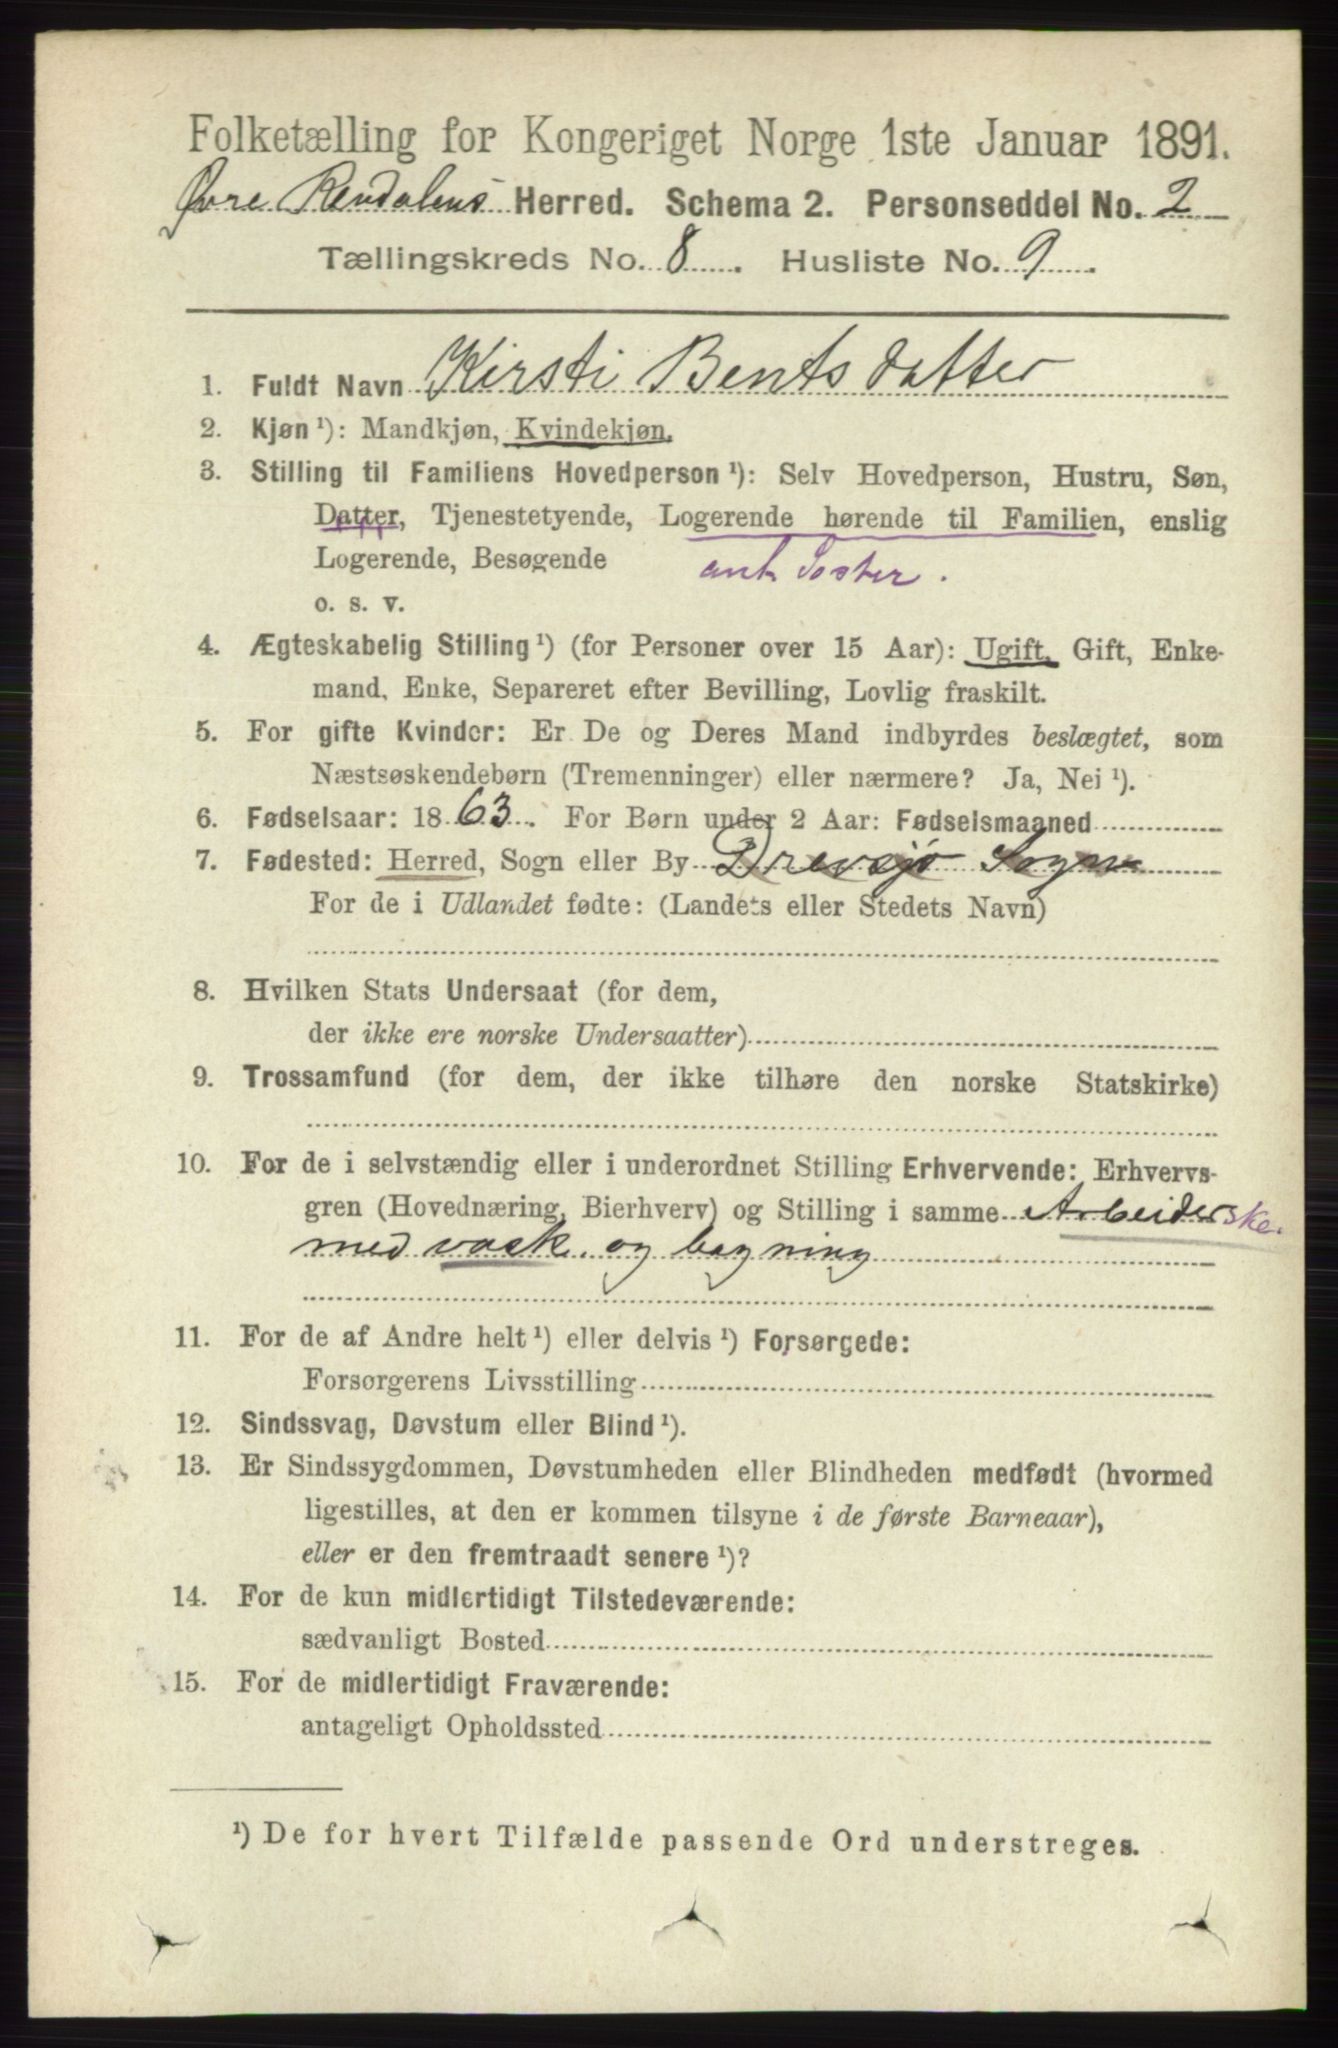 Folketælling for Kongeriget Norge 1ste Januar 1891.
Øvre Rendalens Herred. Schema 2. Personseddel No. 2
Tællingskreds No. 8. Husliste No. 9.
1. Fuldt Navn Kirsti Bentsdatter
2. Kjøn ¹): Mandkjøn, Kvindekjøn.
3. Stilling til Familiens Hovedperson ¹): Selv Hovedperson, Hustru, Søn,
Datter, Tjenestetyende, Logerende hørende til Familien, enslig
Logerende, Besøgende
ant. Søster.
o. s. v.
4. Ægteskabelig Stilling ¹) (for Personer over 15 Aar): Ugift, Gift, Enke-
mand, Enke, Separeret efter Bevilling, Lovlig fraskilt.
5. For gifte Kvinder: Er De og Deres Mand indbyrdes beslægtet, som
Næstsøskendebørn (Tremenninger) eller nærmere? Ja, Nei ¹).
6. Fødselsaar: 1863. For Børn under 2 Aar: Fødselsmaaned
7. Fødested: Herred, Sogn eller By Drevsjø Sogn
For de i Udlandet fødte: (Landets eller Stedets Navn)
8. Hvilken Stats Undersaat (for dem,
der ikke ere norske Undersaatter)
9. Trossamfund (for dem, der ikke tilhøre den norske Statskirke)
10. For de i selvstændig eller i underordnet Stilling Erhvervende: Erhvervs-
gren (Hovednæring, Bierhverv) og Stilling i samme Arbeiderske.
med vask og bagning
11. For de af Andre helt ¹) eller delvis ¹) Forsørgede:
Forsørgerens Livsstilling
12. Sindssvag, Døvstum eller Blind ¹).
13. Er Sindssygdommen, Døvstumheden eller Blindheden medfødt (hvormed
ligestilles, at den er kommen tilsyne i de første Barneaar),
eller er den fremtraadt senere ¹)?
14. For de kun midlertidigt Tilstedeværende:
sædvanligt Bosted
15. For de midlertidigt Fraværende:
antageligt Opholdssted
¹) De for hvert Tilfælde passende Ord understreges.